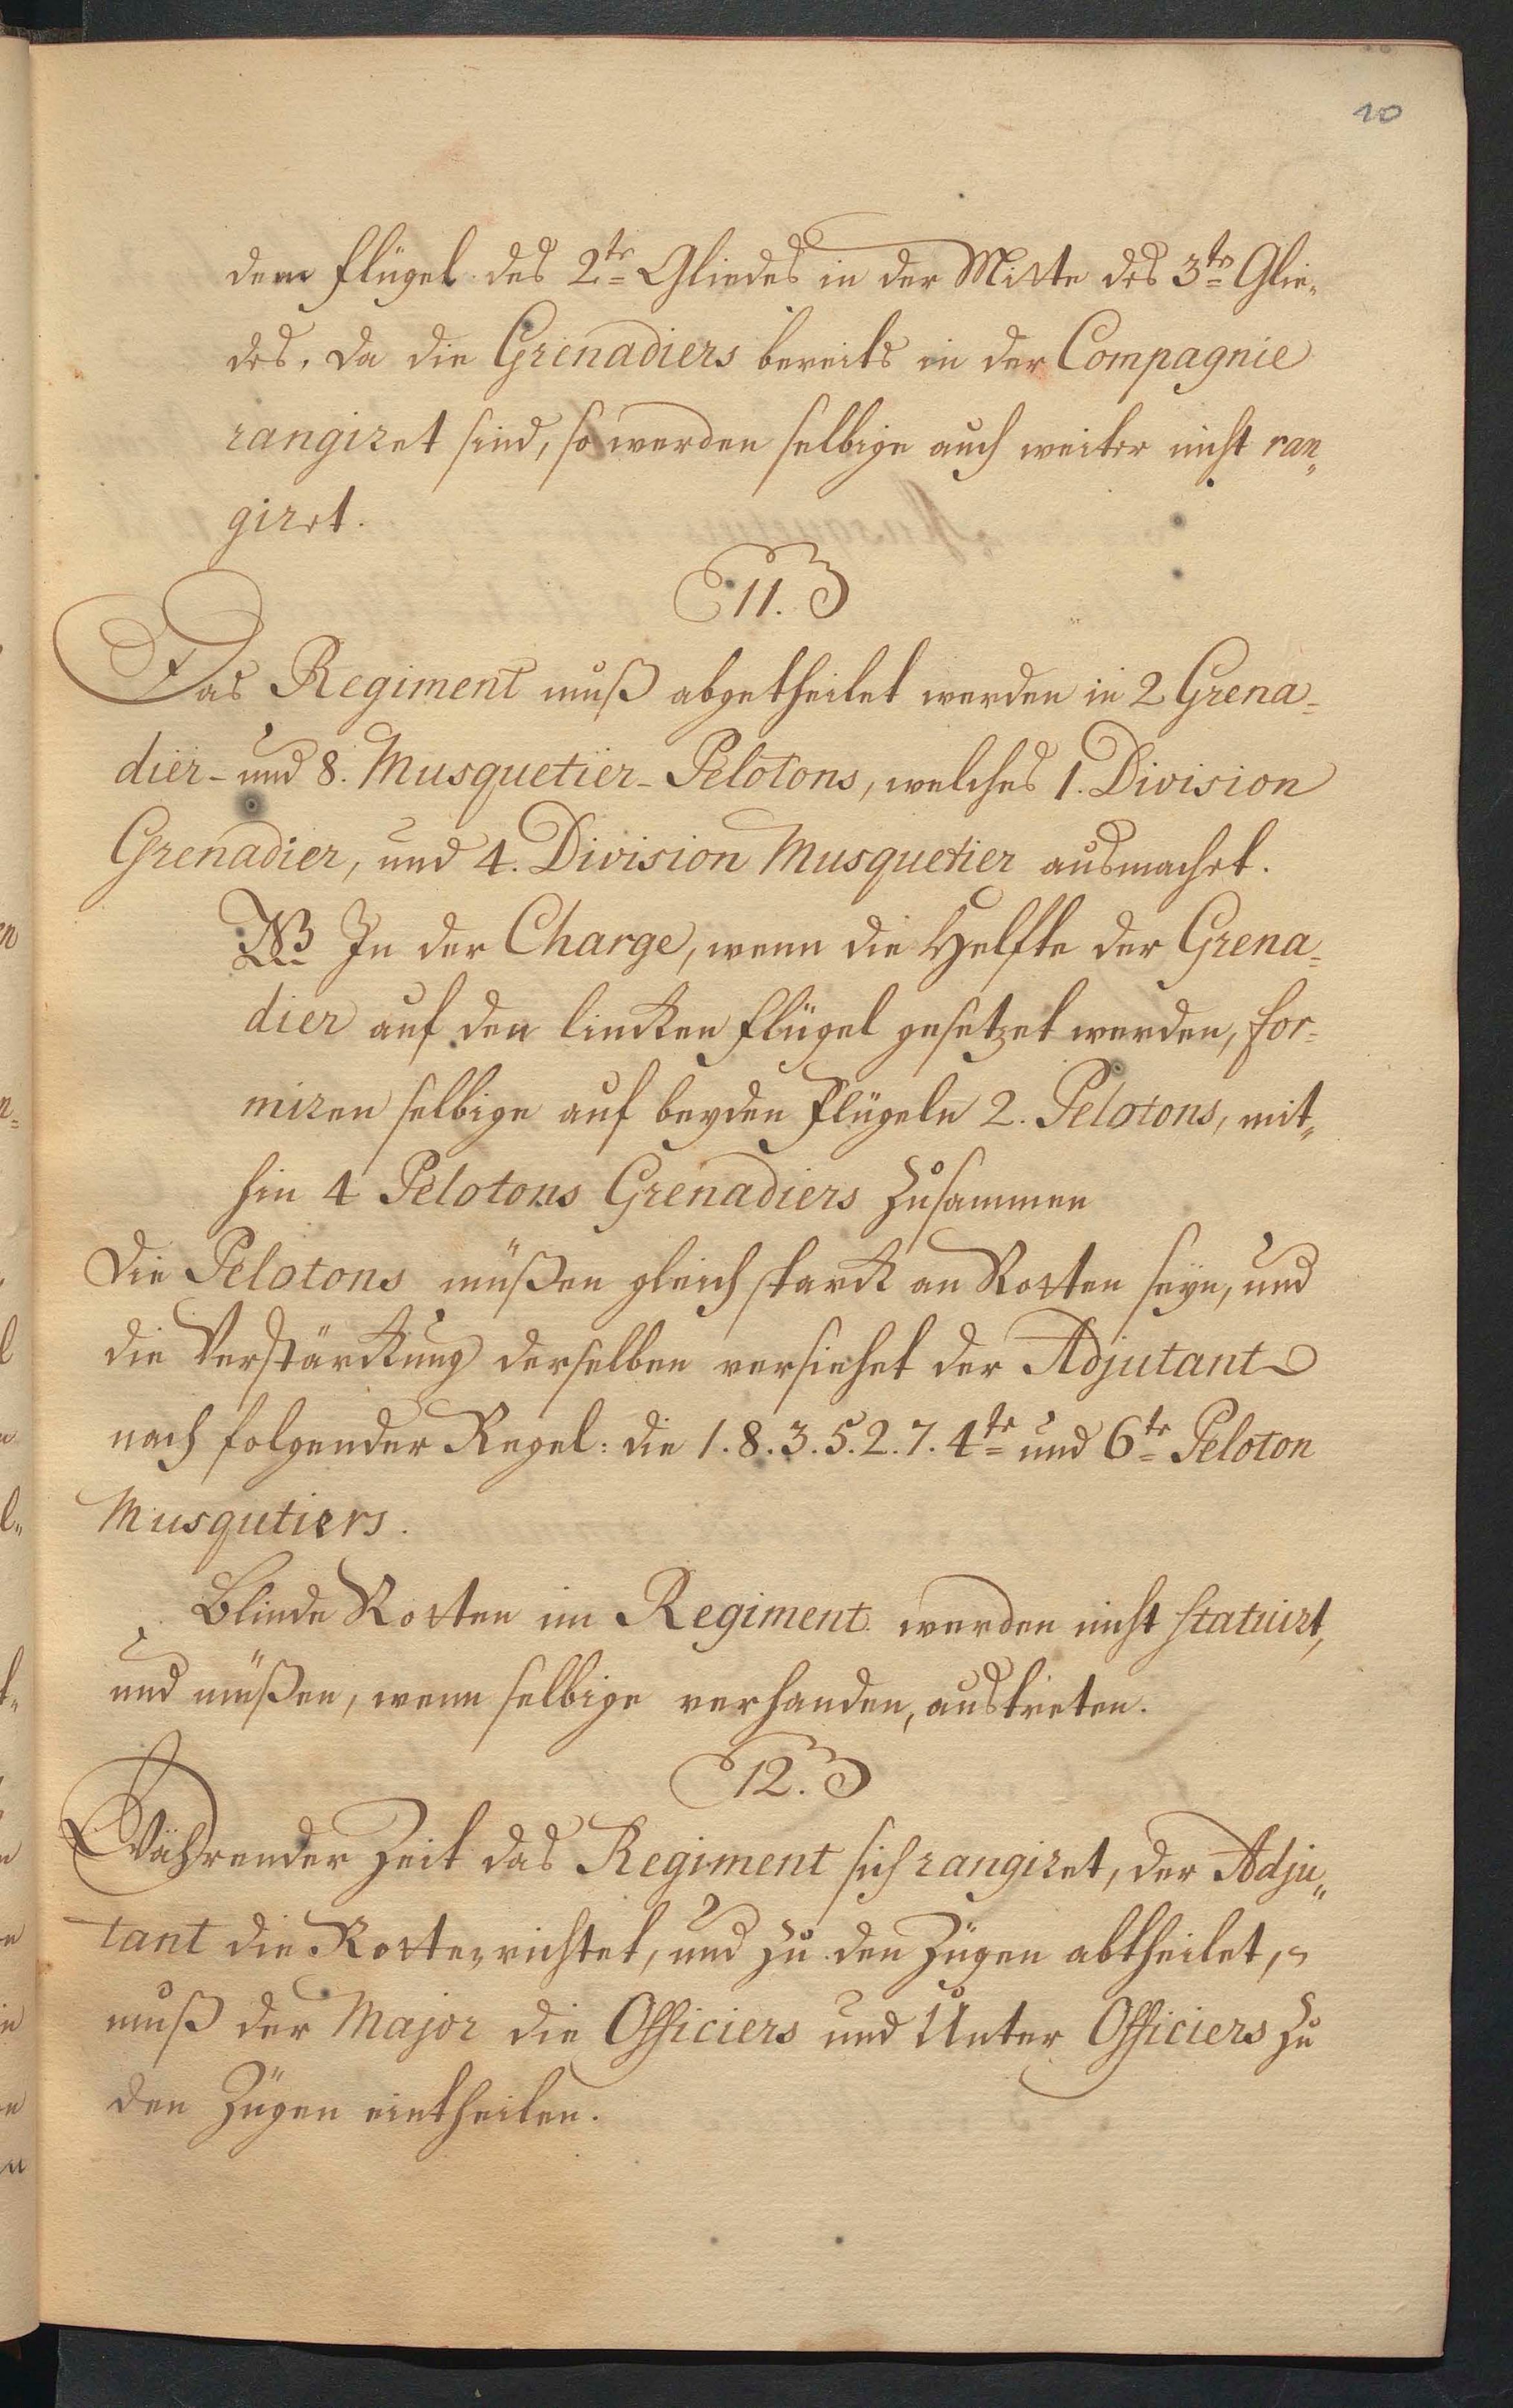 10
dem Flügel des 2te Gliedes in der Mitte des 3te Glie„
des. Da die Grenadiers bereits in der Compagnie
rangiret sind, so werden selbige auch weiter nicht ran„
giret.
11.
Das Regiment muß abgetheilet werden in 2 Grena=
dier- und 8. Musquetier-Pelotons, welches 1. Division
Grenadier, und 4. Division Musquetier ausmachet.
NB In der Charge, wenn die Helfte der Grena=
dier auf den lincken Flügel gesetzet werden, for=
miren selbige auf beyden Flügeln 2. Pelotons, mit„
hin 4 Pelotons Grenadiers zusammen
Die Pelotons müßen gleich starck an Rotten seyn, und
die Verstärckung derselben versiehet der Adjutant
nach folgender Regel: die 1. 8. 3. 5. 2. 7. 4te und 6te Peloton
Musqutiers.
Blinde Rotten im Regiment werden nicht statuirt,
und müßen, wenn selbige verhanden, austreten.
12.
Währender Zeit das Regiment sich rangiret, der Adju„
tant die Rotten richtet, und zu den Zügen abtheilet,
muß der Major die Officiers und Unter Officiers zu
den Zügen eintheilen.